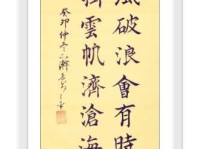 風破浪會有時
掛雲帆濟滄海
癸卯仲冬